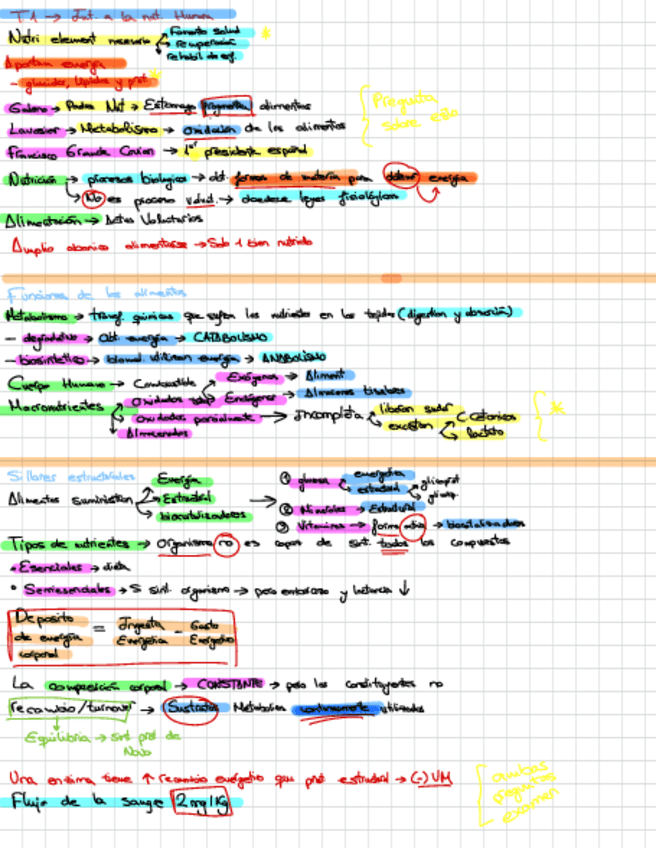 T1 → Int. a la nut. Humana
Nutri element necesario Fomento salud *
Recuperación
rehabil de enf.
Aportan energía
- glúcidos, lípidos y prot *
Galeno → Padre Nut → Estómago alimentos
Lavoisier → Metabolismo → oxidación de los alimentos
Pregunta
sobre ello
Francisco Grande Covián → 1er presidente español
Nutrición → procesos biológicos → obt. formas de materia para obtener energía
→ No es proceso volunt. → obedece leyes fisiológicas
Alimentación → Actos Voluntarios
Amplio abanico alimentarse → Solo 1 bien nutrido
Funciones de los alimentos
Metabolismo → transf. químicas que sufren los nutrientes en los tejidos (digestión y absorción)
- degradativo → Obt. energía → CATABOLISMO
- biosintético → biomol. utilizan energía → ANABOLISMO
Cuerpo Humano → Combustible Exógenos → Aliment
Endógenos → Almacenes tisulares
Macronutrientes Oxidados
Oxidados parcialmente → Incompleta liberan
excretan C. Cetónicos
lactato
*
Almacenados
Sillares estructurales
Alimentos suministran Energía
Estructural
biocatalizadores
① glucosa energética
estructural
② Minerales → Estructural
③ Vitaminas → → biocatalizadores
Tipos de nutrientes → organismo no es capaz de sint. todos los compuestos
• Esenciales → dieta
• Semiesenciales → S sint. organismo → pero embarazo y lactancia ↓
Deposito de energía corporal = Ingesta Energética - Gasto Energético
La composición corporal → CONSTANTE → pero los constituyentes no
recambio/turnover → Sustratos Metabolitos continuamente utilizados
Equilibrio → sint prot de
Novo
Una enzima tiene ↑ recambio energético que prot estructural → (-) VM
Flujo de la sangre 2mg/Kg
ambas
preguntas
examen